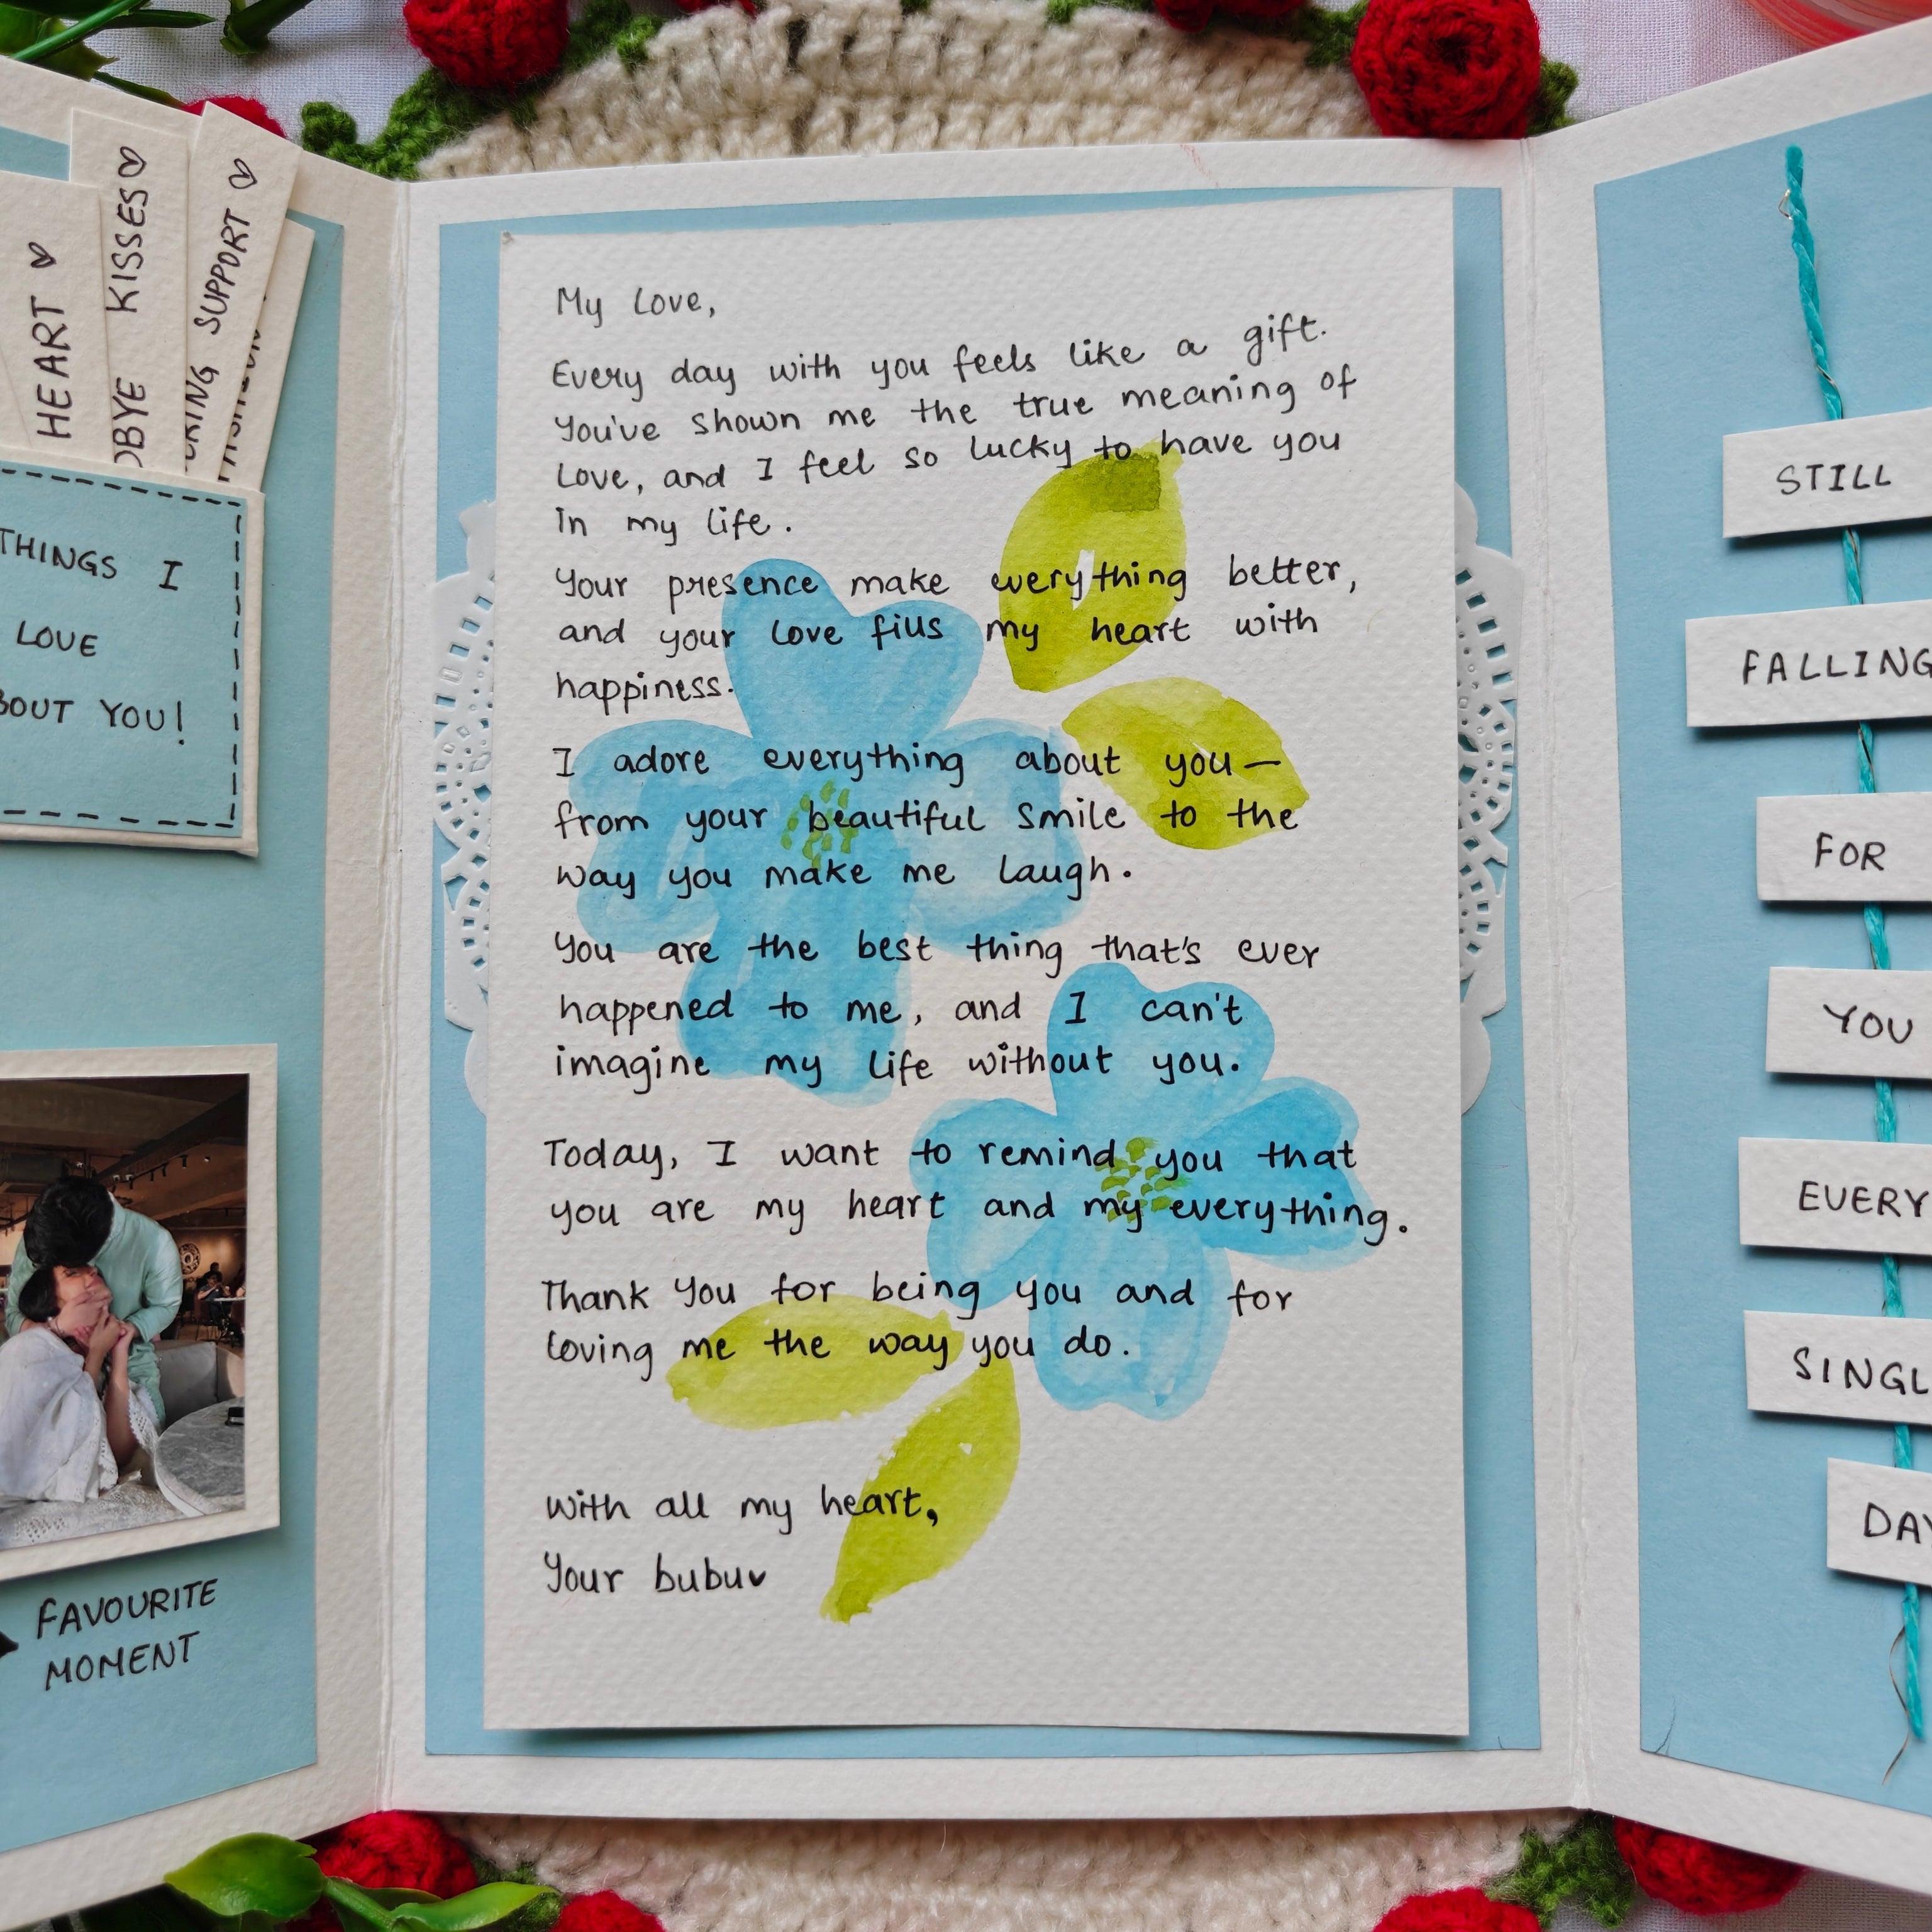 HEART
KISSES
SUPPORT
THINGS I
LOVE
YOU!
FAVOURITE
MOMENT
My Love,
Every day with you feels like a gift.
You've shown me the true meaning of
Love, and I feel so lucky to have you
in my life.
Your presence make everything better,
and your love fills my heart with
happiness.
I adore everything about you—
from your beautiful smile to the
way you make me laugh.
You are the best thing that's ever
happened to me, and I can't
imagine my life without you.
Today, I want to remind you that
you are my heart and my everything.
Thank You for being you and for
loving me the way you do.
With all my heart,
Your bubu♥
STILL
FALLING
FOR
YOU
EVERY
SINGL
DAY